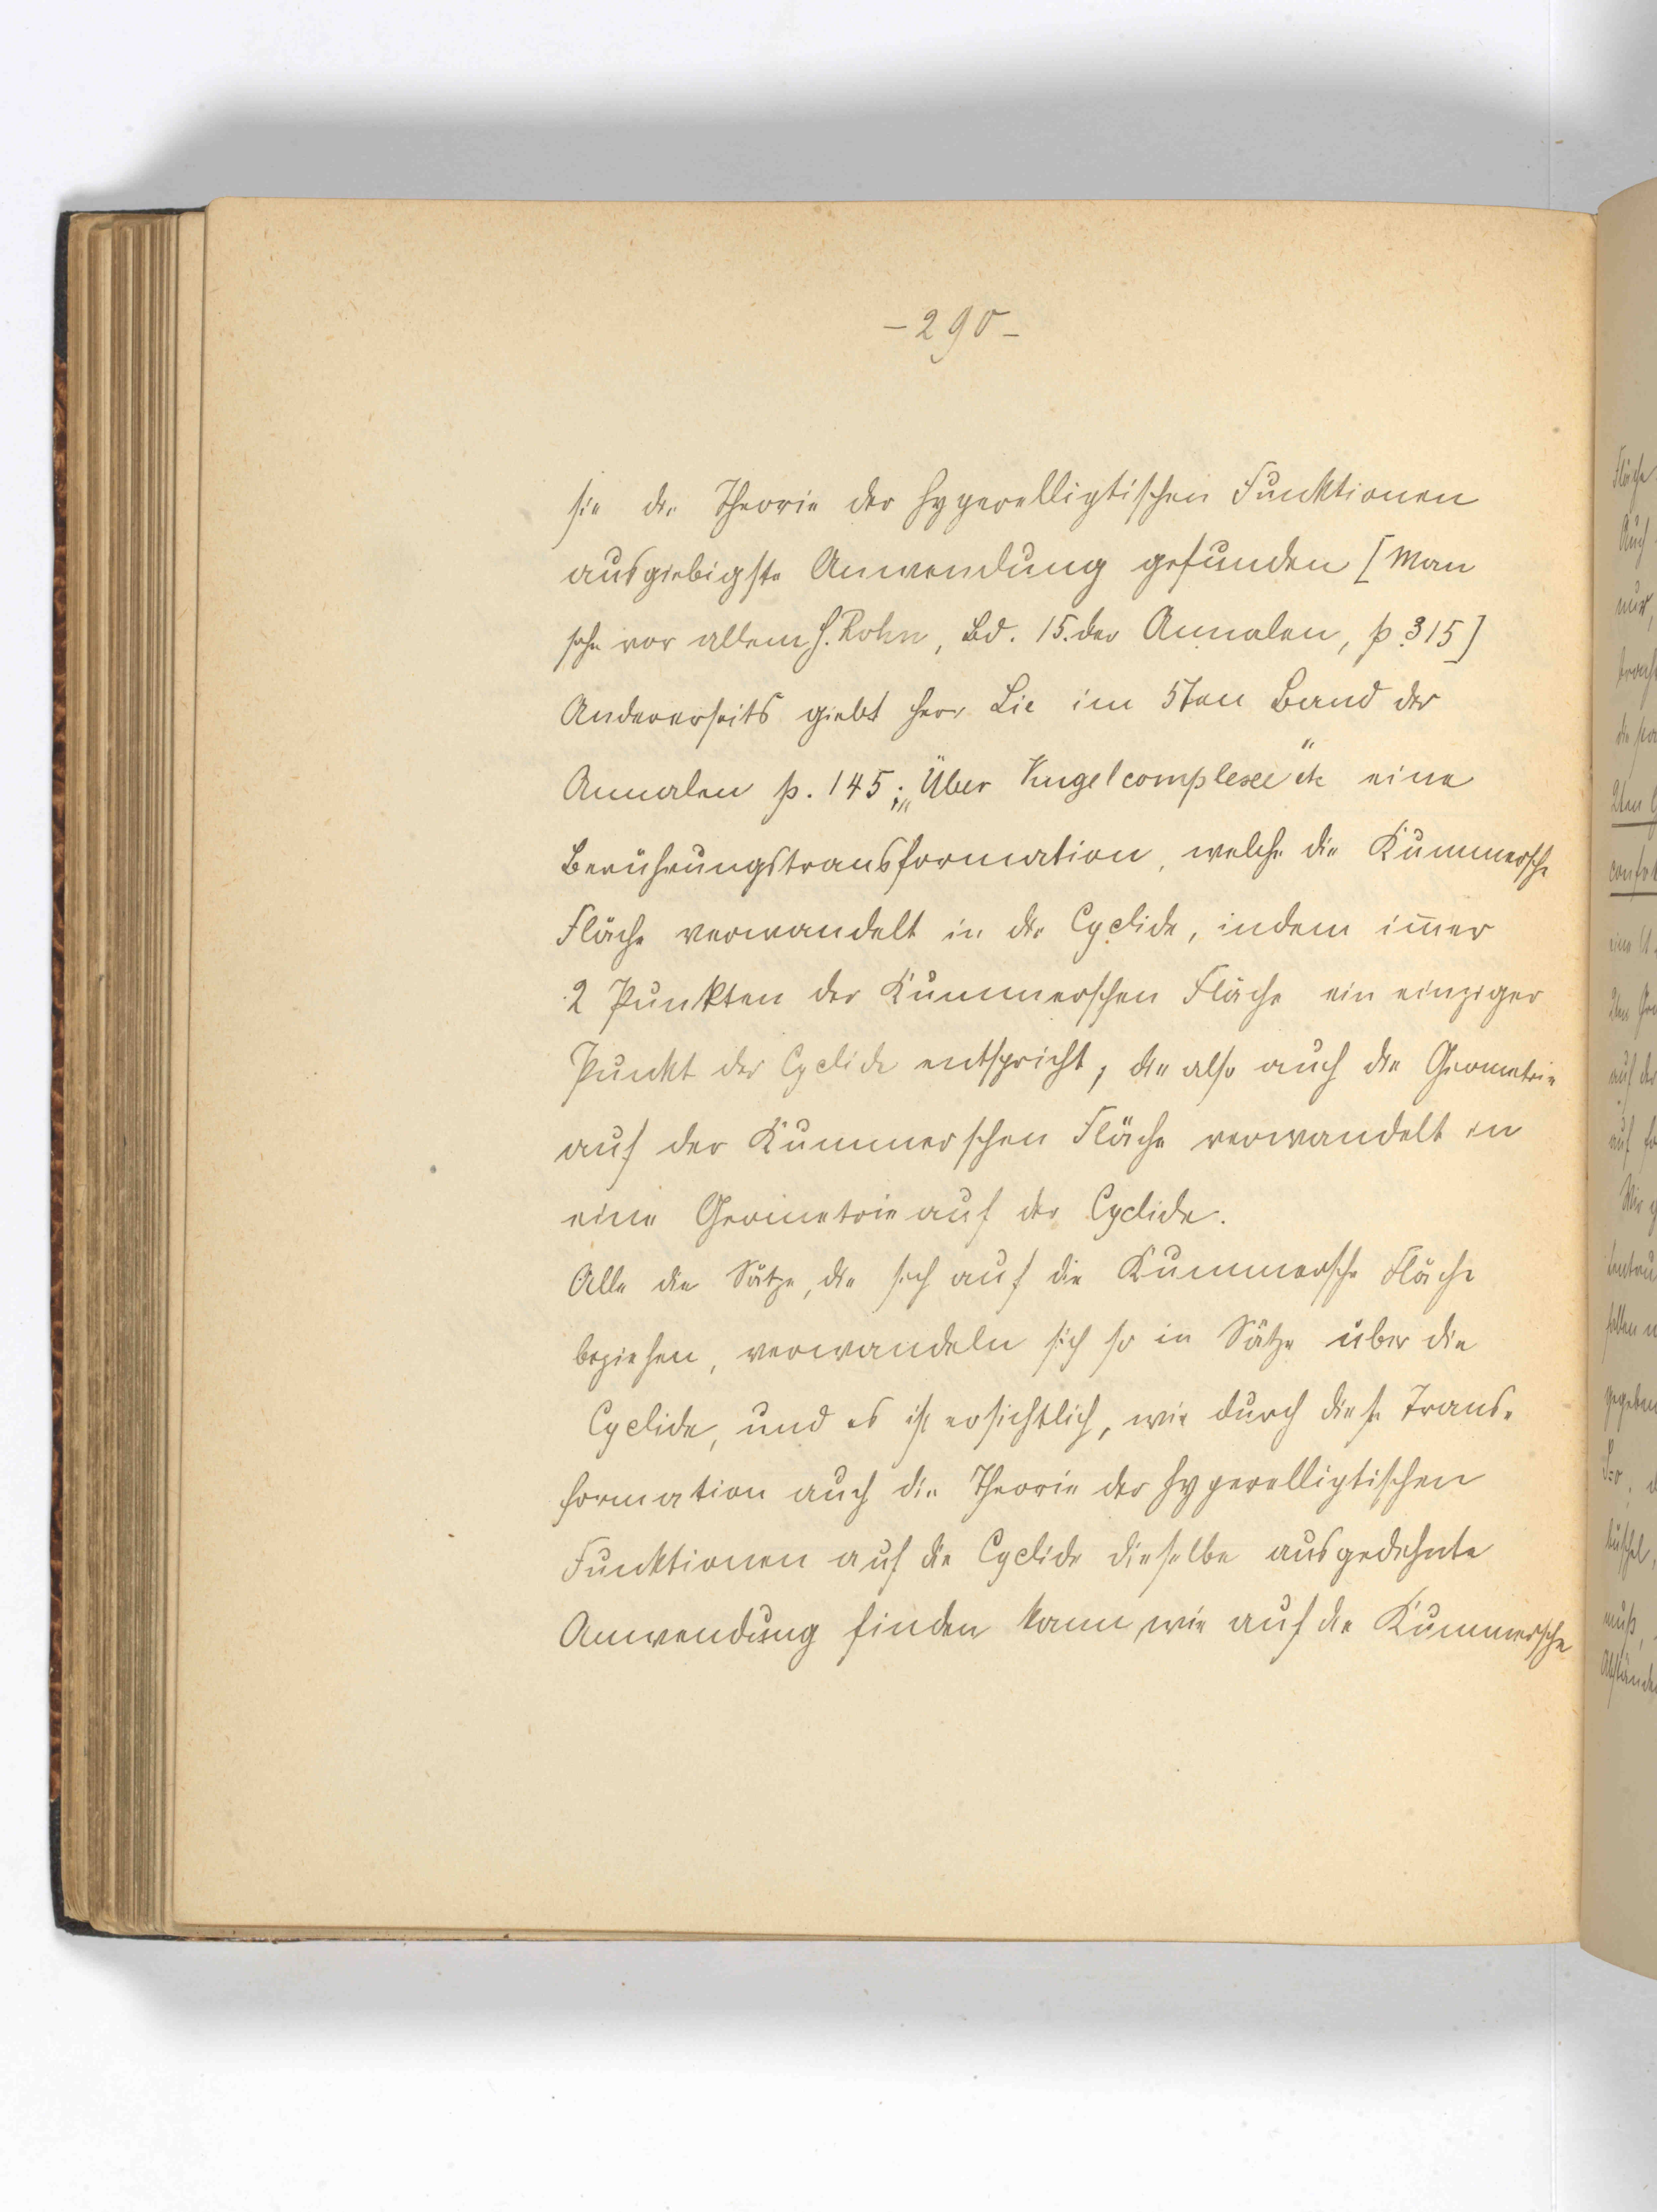 – 290 –
sie die Theorie der hyperelliptischen Funktionen
ausgiebigste Anwendung gefunden [Man
sehe vor allem H. Rohn, Bd. 15. der Annalen, p. 315]
Andererseits giebt Herr Lie im 5ten Band der
Annalen p. 145: „Über Kugelcomplexe" etc eine
Berührungstransformation, welche die Kummersche
Fläche verwandelt in die Cyclide, indem im̅er
2 Punkten der Kummerschen Fläche ein einziger
Punkt der Cyclide entspricht, die also auch die Geometrie
auf der Kummerschen Fläche verwandelt in
eine Geometrie auf der Cyclide.
Alle die Sätze, die sich auf die Kummersche Fläche
beziehen, verwandeln sich so in Sätze über die
Cyclide, und es ist ersichtlich, wie durch diese Trans-
formation auch die Theorie der hyperelliptischen
Funktionen auf die Cyclide dieselbe ausgedehnte
Anwendung finden kann, wie auf die Kummersche